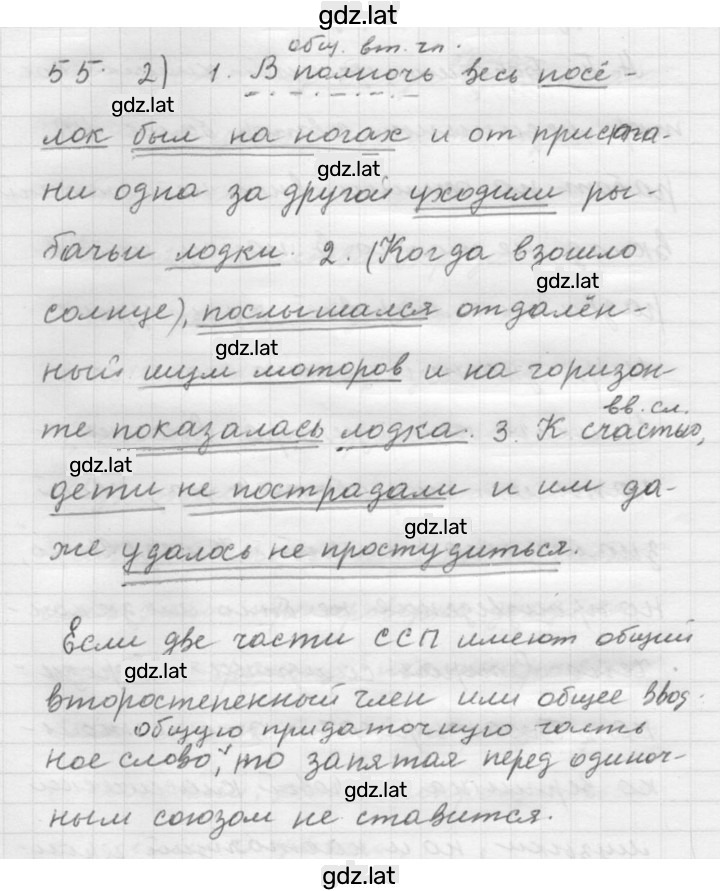 gdz.lat
общ. вт. чл.
55. 2) 1. В полночь весь посё-
gdz.lat
лок был на ногах и от приста-
gdz.lat
ни одна за другой уходили ры-
бачьи лодки. 2. (Когда взошло
gdz.lat
солнце), послышался отдалён-
gdz.lat
ный шум моторов и на горизон-
вв. сл.
те показалась лодка. 3. К счастью,
gdz.lat
дети не пострадали и им да-
gdz.lat
же удалось не простудиться.
Если две части ССП имеют общий
gdz.lat
второстепенный член или общее ввод-
общую придаточную часть
ное слово, то запятая перед одиноч-
gdz.lat
ным союзом не ставится.
gdz.lat